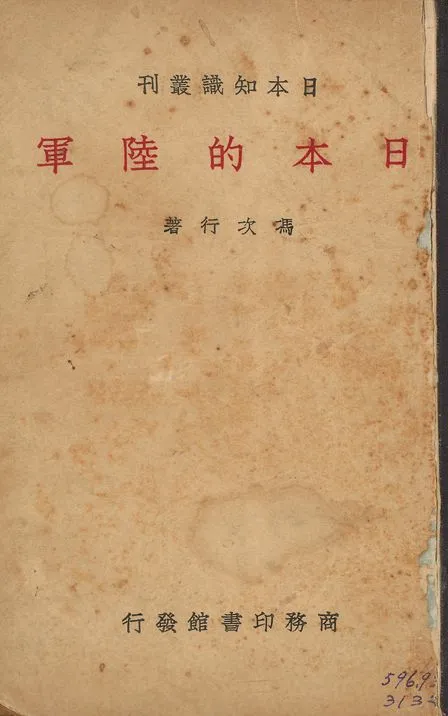 日本知識叢刊
日本的陸軍
馮次行著
商務印書館發行
596.9
313